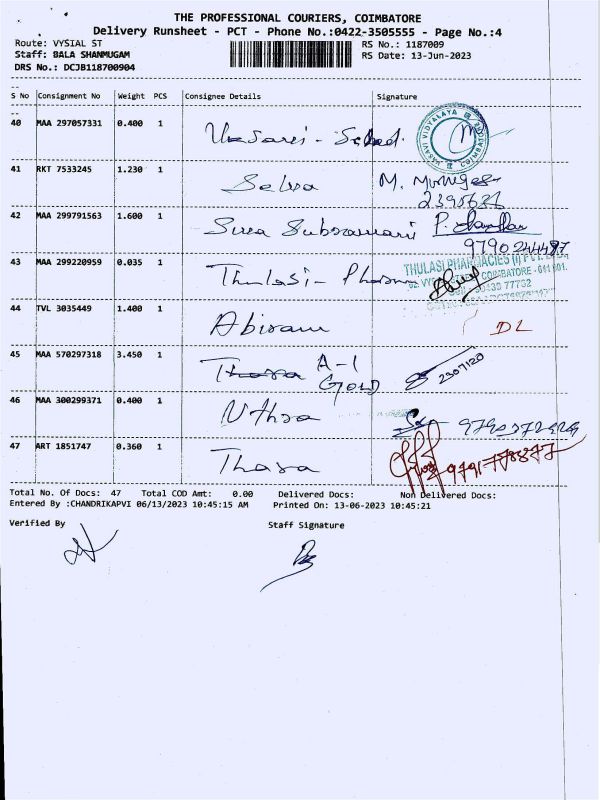 THE PROFESSIONAL COURIERS, COIMBATORE
Delivery Runsheet - PCT - Phone No.:0422-3505555 - Page No.:4
Route: VYSIAL ST RS No.: 1187009
Staff: BALA SHANMUGAM RS Date: 13-Jun-2023
DRS No.: DCJB118700904
S No Consignment No Weight PCS Consignee Details Signature
40 MAA 297057331 0.400 1
VASAVI VIDYALAYA COIMBATORE
41 RKT 7533245 1.230 1 Selva M.
42 MAA 299791563 1.600 1 Siva Subramani P.
9790244487
43 MAA 299220959 0.035 1 Thulasi - Pharma
THULASI PHARMACIES (I) PVT. LTD.
COIMBATORE - 641 001.
44 TVL 3035449 1.400 1 Abiram DL
45 MAA 570297318 3.450 1 Thara A-1 GOLD 2307120
46 MAA 300299371 0.400 1 Uthra
47 ART 1851747 0.360 1 Thara
Total No. Of Docs: 47 Total COD Amt: 0.00 Delivered Docs: Non Delivered Docs:
Entered By :CHANDRIKAPVI 06/13/2023 10:45:15 AM Printed On: 13-06-2023 10:45:21
Verified By Staff Signature